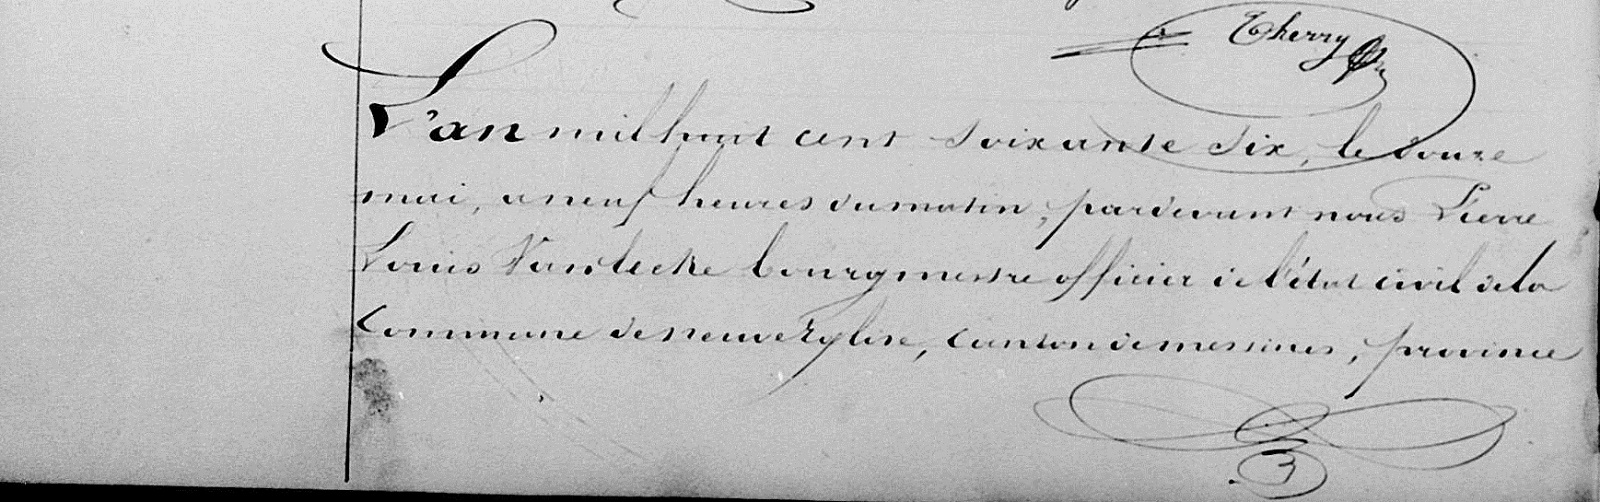 Therry
L'an mil huit cent soixante six, le douze
mai, a neuf heures du matin, pardevant nous Pierre
Louis Vanlecke bourgmestre officier de l'état civil de la
Commune de neuve Eglise, canton de messines, province